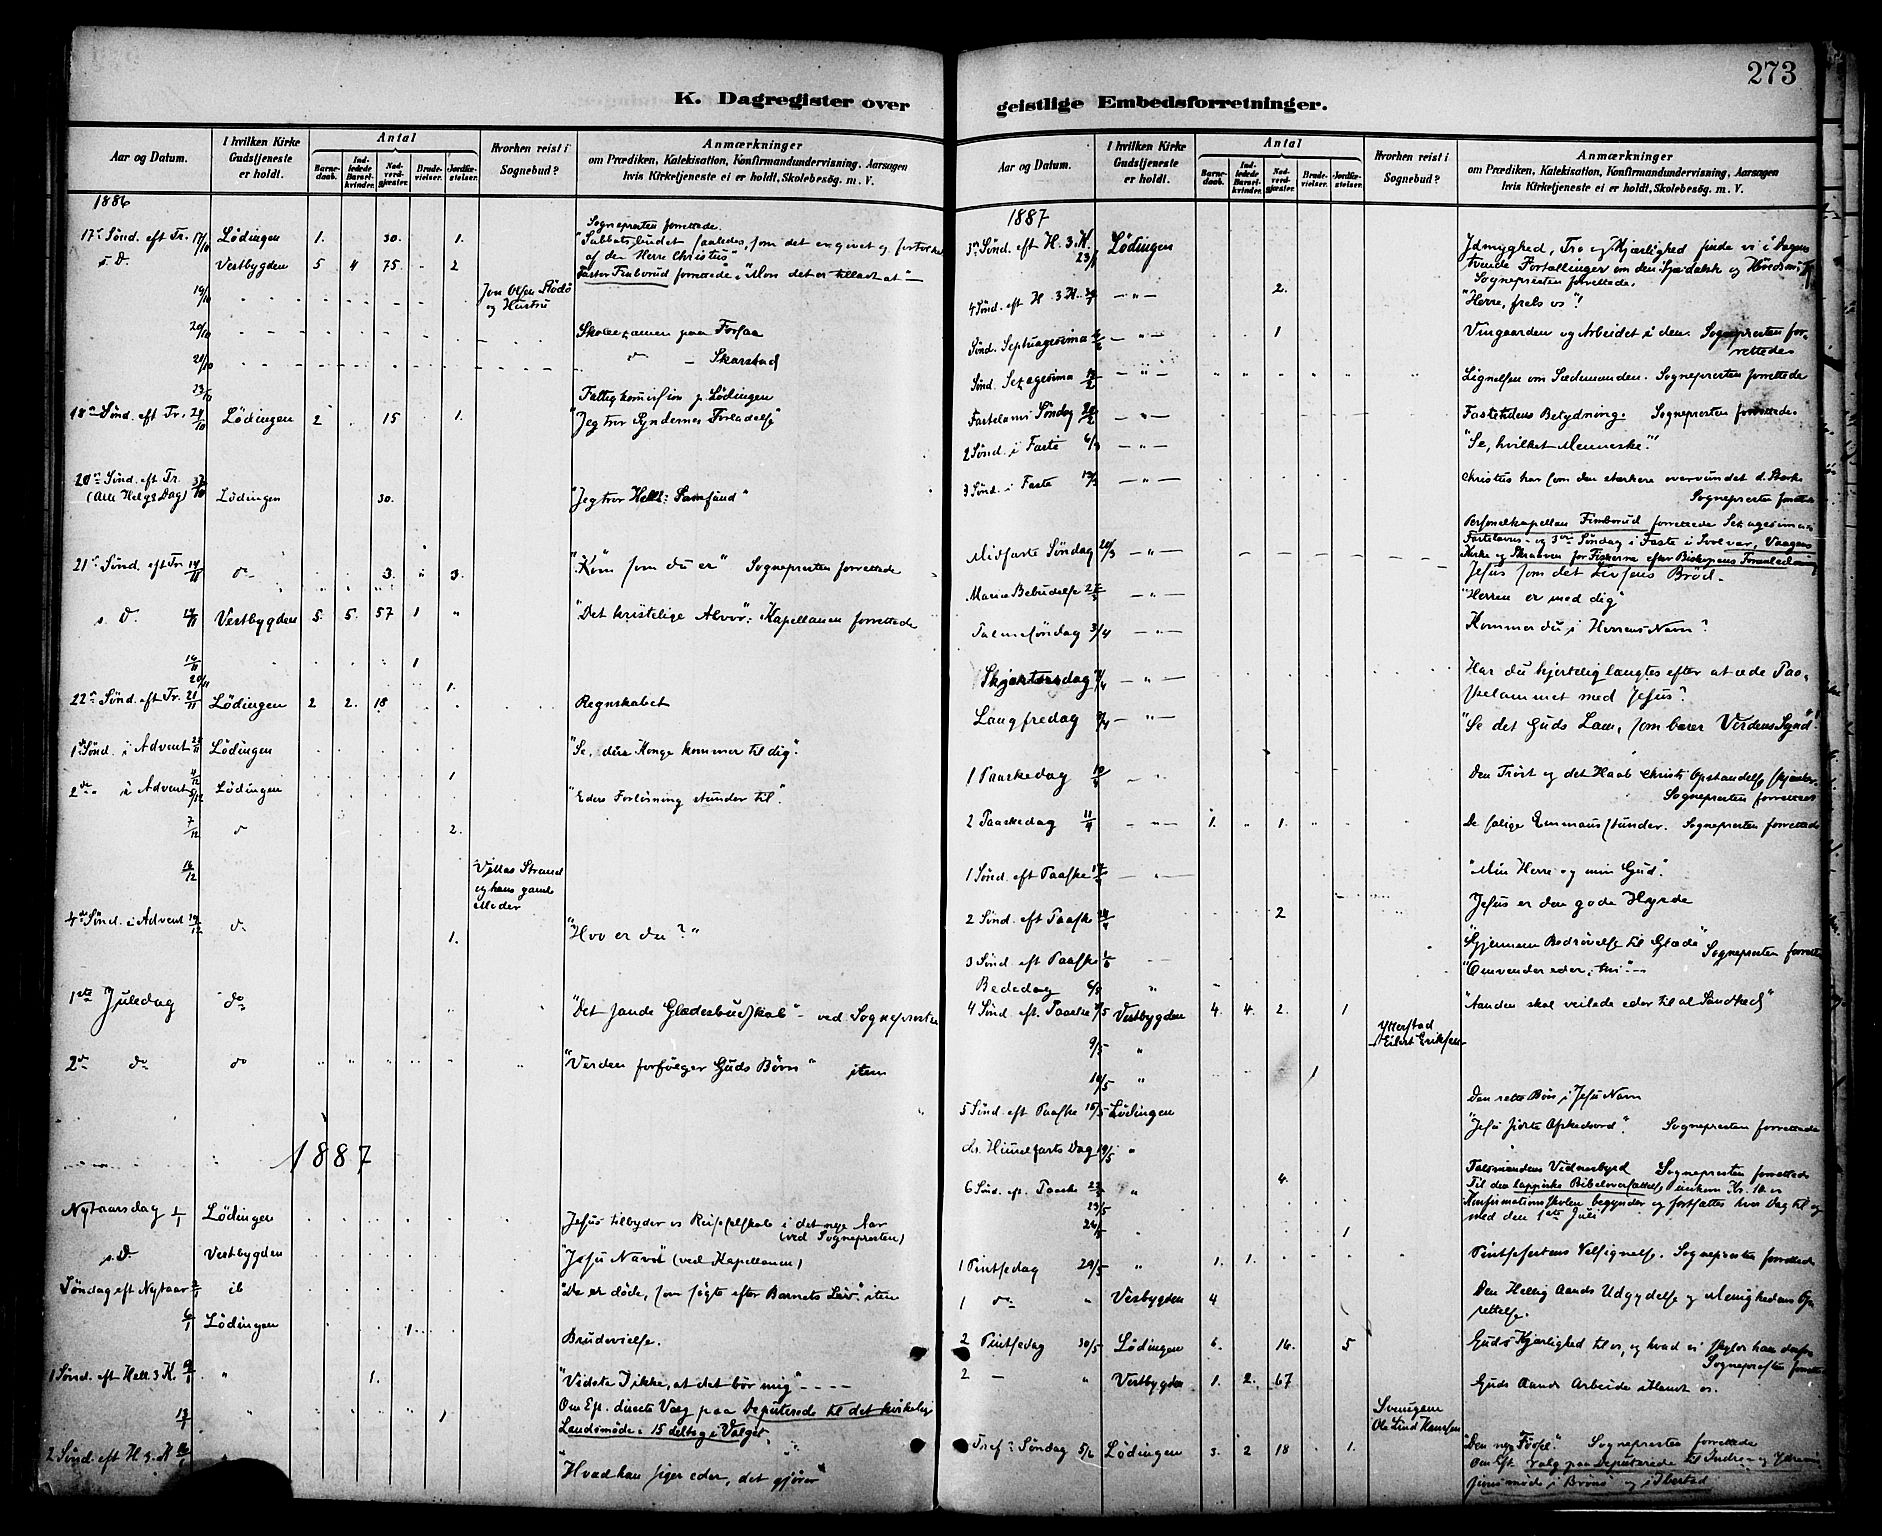 273
K. Dagregister over geistlige Embedsforretninger.
Aar og Datum.
I hvilken Kirke Gudstjeneste er holdt.
Antal
Barnedaab.
Indledede Barselkvinder.
Nadverdgjæster.
Brudevielser.
Jordfæstelser.
Hvorhen reist i Sognebud?
Anmærkninger
om Prædiken, Katekisation, Konfirmandundervisning, Aarsagen
hvis Kirketjeneste ei er holdt, Skolebesøg. m. V.
1886
Sognepresten forrettede.
17de Sønd. eft Tr. 17/10 Lödingen 1. 30. 1. "Sabbatsbudet saaledes, som det er givet og
af den Herre Christus"
s. D. Vestbygden 5 4 75 - 2 Pastor Fimborud forrettede: "Mon det er tilladt at" –
19/10 Jon Olsen
og Hustru
20/10 Skoleexamen paa Forsaa
21/10 do - Skarstad
23/10 Fattigkomission p. Lödingen
18de Sønd. eft Tr. 24/10 Lödingen 2 15 1. "Jeg tror Syndernes Forladelse"
20de Sønd. eft Tr. 31/10
(Alle Helgs Dag) Lödingen 30. "Jeg tror Samfund"
21de Sönd. eft Tr. 14/11 do 3. " 3. "Kom som du er" Sognepresten forrettede
s. D. 14/11 Vestbygden 5. 5. 57 1 " "Det kristelige Alvor": Kapellanen forrettede
16/11 1
20/11 1.
22de Sønd. eft Tr. 21/11 Lödingen 2 2. 18 Regnskabet
1ste Sønd. i Advent 28/11 Lödingen "Se, din Konge kommer til dig".
4/12 1
2den i Advent 5/12 Lödingen "Eders Forløsning stunder til".
7/12 do 2.
16/12 Strand
og hans gamle
Moder
4de Sønd. i Advent 19/12 do 1. "Hvo er du?"
1ste Juledag do "Det sande Glædesbudskab" - ved Sognepresten
2den do do "Verden forfølger Guds Børn" item
1887
Nytaarsdag 1/1 Lödingen Jesus tilbyder os Reisefølskab i det nye Aar
(ved Sognepresten)
s. D. Vestbygden "Jesu Navn" (ved Kapellanen)
Søndag eft Nytaar 2/1 ib "De er døde, som søgte efter Barnets Liv". item
6/1 Lödingen 1 Brudevielse.
1 Sønd. eft Hell 3 K. 9/1 " 1. "Vidste I ikke, at det bør mig" ----
13/1 " 1 Om Eft. directe Valg paa Deputerede til det kirkelige
Landsmøde: 15 deltog i Valget.
2 Sønd. eft H 3. K 16/1 "Hvad han siger eder, det gjører
Aar og Datum.
I hvilken Kirke Gudstjeneste er holdt.
Antal
Barnedaab.
Indledede Barselkvinder.
Nadverdgjæster.
Brudevielser.
Jordfæstelser.
Hvorhen reist i Sognebud?
Anmærkninger
om Prædiken, Katekisation, Konfirmandundervisning, Aarsagen
hvis Kirketjeneste ei er holdt, Skolebesøg. m. V.
1887
3de Sønd. eft H. 3. K. 23/1 Lödingen Ydmyghed, Tro og Kjærlighed finde vi i Dagens
tvende Fortællinger om den Spedalske og
Sognepresten forrettede.
4 Sönd. eft H. 3 K. 30/1 2. "Herre, frels os"!
Sönd. Septuagesima 6/2 1 Vingaarden og Arbeidet i den. Sognepresten forrettede
Sønd. Sexagesima 13/2 Lignelsen om Sædemanden. Sognepresten forrettede
Fastelavns Søndag 20/2 Fastetidens Betydning. Sognepresten forrettede.
2 Sønd. i Faste 6/3 "Se, hvilket Menneske!"
3 Sønd. i Faste 13/3 Christus har som den stærkere overvundet d. Stærke
Sognepresten forrettede
Personelkapellan Fimborud forrettede Sexagesima-
Fastelavns- og 3die Søndag i Faste i Svolvær, Vaagens
Kirke og Skraaven for Fiskerne efter Biskopens Foranledning
Midfaste Søndag 20/3 Jesus som det Livsens Brød.
Mariæ Bebudelse 25/3 "Herren er med dig"
Palmesøndag 3/4 Kommer du i Herrens Navn?
Skjærtorsdag 7/4 Har du hjertelig længtes efter at æde Paaskelammet
med Jesus?
Langfredag 8/4 "Se det Guds Lam, som bærer Verdens Synd"!
1 Paaskedag 10/4 Den Trøst og det Haab Christi Opstandelse skjænker.
Sognepresten forrettede
2 Paaskedag 11/4 1. " 1. De salige Emmausstunder. Sognepresten forrettede
1 Sønd. eft Paaske 17/4 "Min Herre og min Gud."
2 Sønd. eft Paaske 24/4 2 Jesus er den gode Hyrde
3 Sønd. eft Paaske 1/5 "Gjennem Bedrøvelse til Glæde" Sognepresten forrettede
Bededag 6/5 " "Omvender eder, thi" --
4 Sønd. eft. Paaske 8/5 Vestbygden 4. 4. 2. 1 "Aanden skal veilede eder til al Sandhed"
9/5 " Ytterstad
Eilert Eriksen
10/5 " 1
5 Sønd. eft Paaske 15/5 Lödingen Den rette Bøn i Jesu Navn
Chr. Himmelfarts Dag 19/5 " "Jesu sidste Afskedsord". Sognepresten forrettede
6 Sønd. eft. Paaske 22/5 " 4. Talsmandens Vidnesbyrd Sognepresten forrettede
Til den lappiske Bibeloversættelse indkom Kr. 10.
23/5 Konfirmationsskolen begynder og fortsættes hver Dag til og
med den 1ste Juli
24/5 " 1
1 Pintsedag 29/5 " 1. 1. Pintsefestens Velsignelse. Sognepresten forrettede
1 do " Vesbygden 4 Den Hellig Aands Udgydelse og Menighedens Oprettelse.
2 Pintsedag 30/5 Lödingen 6. 16. 5 Guds Kjærlighed til os, og hvad vi skylde ham derfor
Sognepresten forrettede
2 – " Vestbygden 1. 2. 67 Guds Aands Arbeide iblandt os.
Svenigen
Ole Lind Hansen
Tref: Søndag 5/6 Lödingen 3. 2 18 1. "Den nye Fødsel". Sognepresten forrettede
Om Eft Valg paa Deputerede til Indre- og
møde i Brönö og i Ibestad